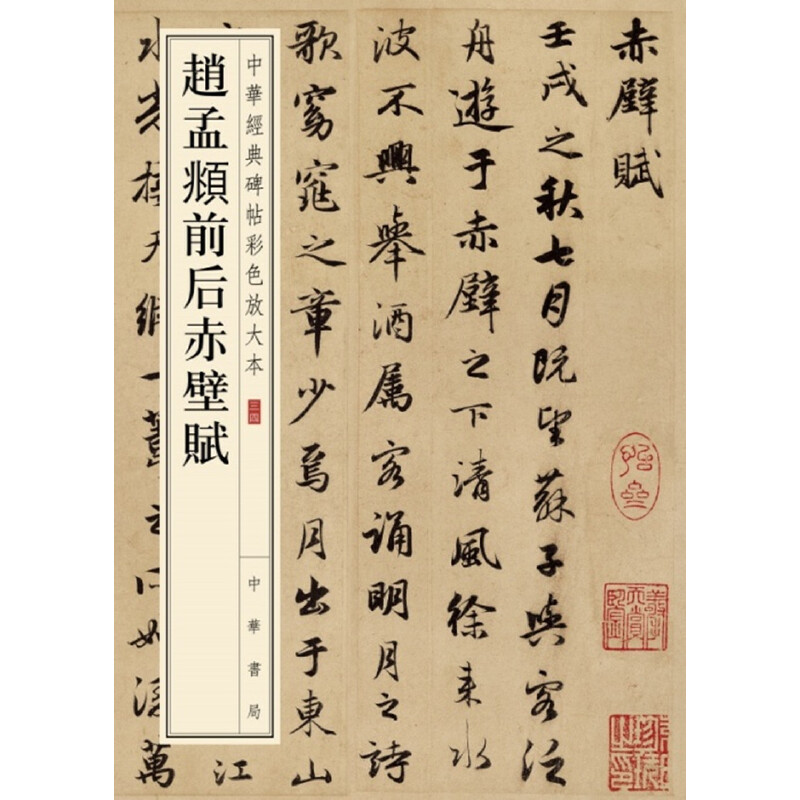 赤壁賦
壬戌之秋七月既望蘇子與客泛
舟遊于赤壁之下清風徐来水
波不興舉酒属客誦明月之詩
歌窈窕之章少焉月出于東山
江
水光接天縱一葦之所如淩萬
中華經典碑帖彩色放大本 三四
趙孟頫前后赤壁賦
中華書局